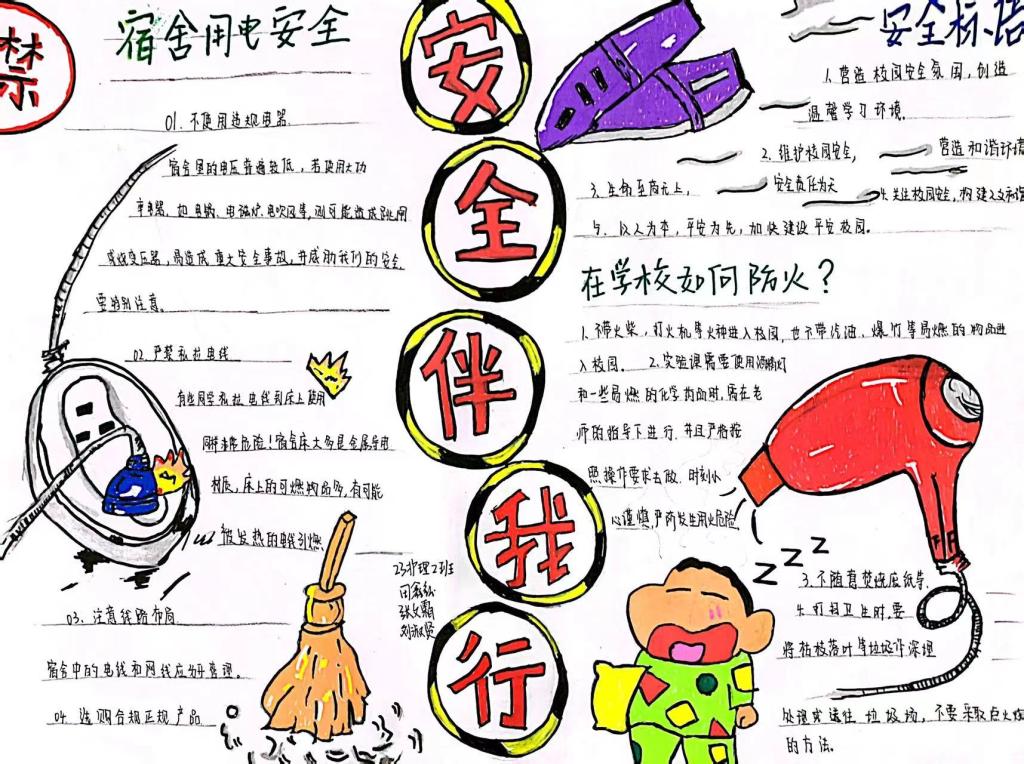 禁
宿舍用电安全
01. 不使用违规电器
宿舍里的电压普遍较低，若使用大功
率电器，如电锅、电磁炉、电吹风等，则可能造成跳闸
或烧变压器，易造成重大安全事故，并威胁我们的安全
要特别注意。
02. 严禁私拉电线
有些同学私拉电线到床上使用
同样非常危险！宿舍床大多是金属导电
材质，床上的可燃物品多，有可能
被发热的电线引燃
03. 注意线路布局
宿舍中的电线和网线应分开管理。
04. 选购合规正规产品
安
全
伴
我
行
23护理2班
刘淑贤
安全标语
1. 营造校园安全氛围，创造
温馨学习环境。
2. 维护校园安全，
营造和谐环境
3. 生命至高无上，
安全责任为天
4. 关注校园安全，构建文和谐
5. 以人为本，平安为先，加快建设平安校园。
在学校如何防火？
1. 不带火柴，打火机等火种进入校园，也不带汽油、爆竹等易燃的物品进
入校园。 2. 实验课需要使用酒精灯
和一些易燃的化学物品时，需在老
师的指导下进行，并且严格按
照操作要求去做，时刻小
心谨慎，严防发生用火危险
zzz
3. 不随意焚烧废纸等，
4. 打扫卫生时，要
将枯枝落叶等垃圾作深埋
处理或送往垃圾场，不要采取点火烧
的方法。